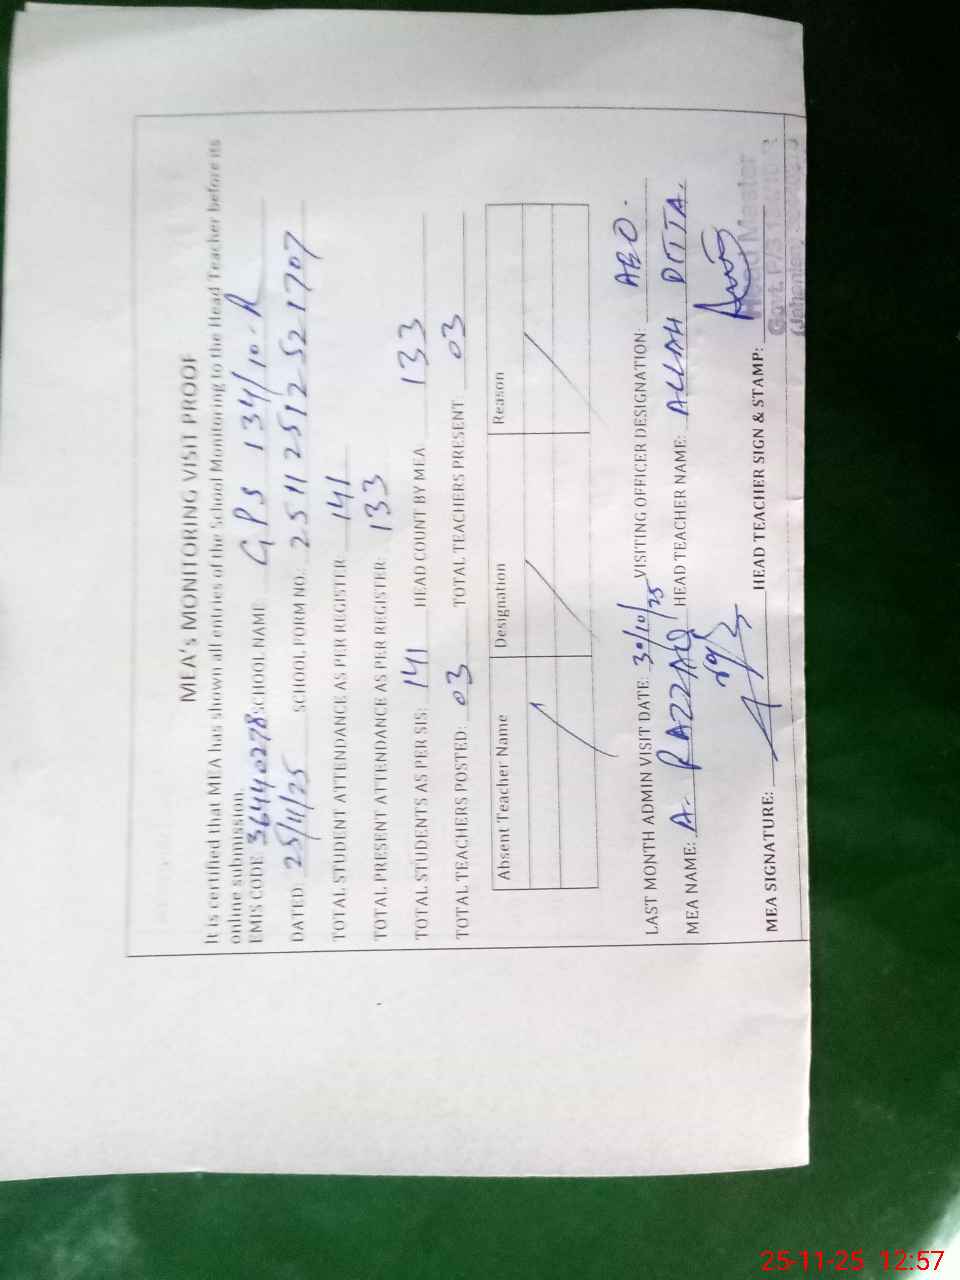 MEA's MONITORING VISIT PROOF
It is certified that MEA has shown all entries of the School Monitoring to the Head Teacher before its
online submission.
EMIS CODE 36440278 SCHOOL NAME GPS 134/10-R
DATED 25/11/25 SCHOOL FORM NO.: 2511251252 1707
TOTAL STUDENT ATTENDANCE AS PER REGISTER: 141
TOTAL PRESENT ATTENDANCE AS PER REGISTER: 133
TOTAL STUDENTS AS PER SIS: 141 HEAD COUNT BY MEA 133
TOTAL TEACHERS POSTED: 03 TOTAL TEACHERS PRESENT: 03
Absent Teacher Name Designation Reason
LAST MONTH ADMIN VISIT DATE: 30/10/25 VISITING OFFICER DESIGNATION: AEO.
MEA NAME: A. RAZZAQ HEAD TEACHER NAME: ALLAH DITTA.
MEA SIGNATURE: HEAD TEACHER SIGN & STAMP:
Head Master
Govt. P/S
25-11-25 12:57